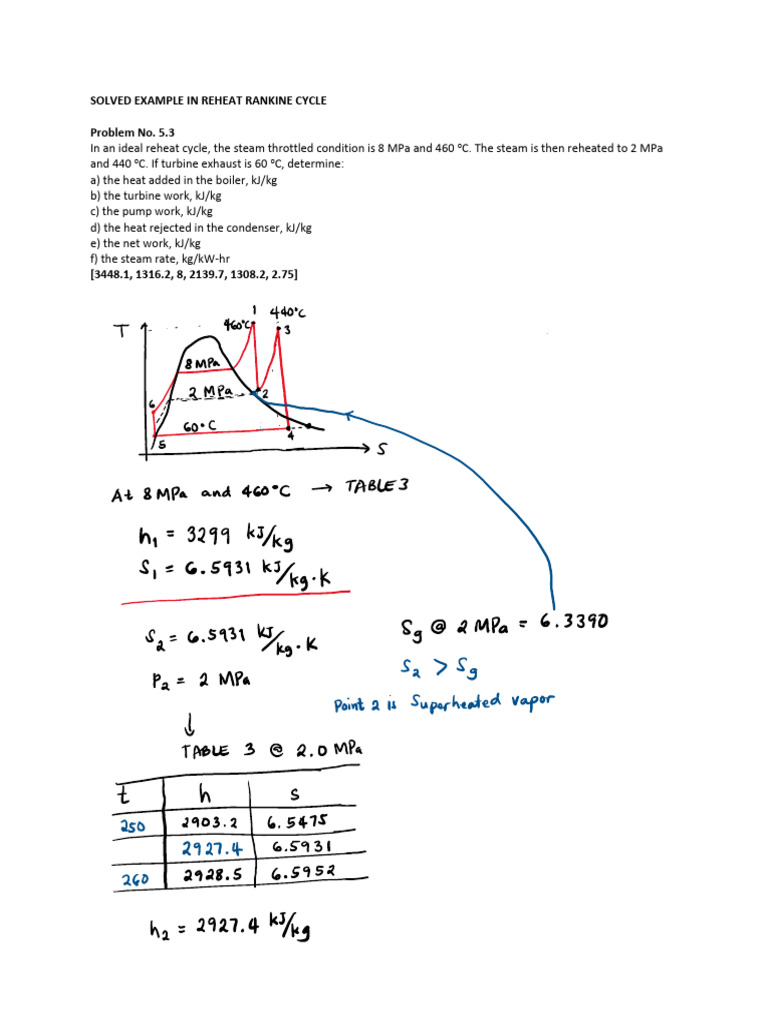 SOLVED EXAMPLE IN REHEAT RANKINE CYCLE
Problem No. 5.3
In an ideal reheat cycle, the steam throttled condition is 8 MPa and 460 ⁰C. The steam is then reheated to 2 MPa
and 440 ⁰C. If turbine exhaust is 60 ⁰C, determine:
a) the heat added in the boiler, kJ/kg
b) the turbine work, kJ/kg
c) the pump work, kJ/kg
d) the heat rejected in the condenser, kJ/kg
e) the net work, kJ/kg
f) the steam rate, kg/kW-hr
[3448.1, 1316.2, 8, 2139.7, 1308.2, 2.75]
T
460°C
1
440°C
3
8 MPa
2 MPa
2
6
60°C
5
4
S
At 8 MPa and 460°C → TABLE 3
h₁ = 3299 kJ/kg
S₁ = 6.5931 kJ/kg·K
S₂ = 6.5931 kJ/kg·K
P₂ = 2 MPa
Sg @ 2 MPa = 6.3390
S₂ > Sg
Point 2 is Superheated vapor
↓
TABLE 3 @ 2.0 MPa
t h s
250 2903.2 6.5475
2927.4 6.5931
260 2928.5 6.5952
h₂ = 2927.4 kJ/kg